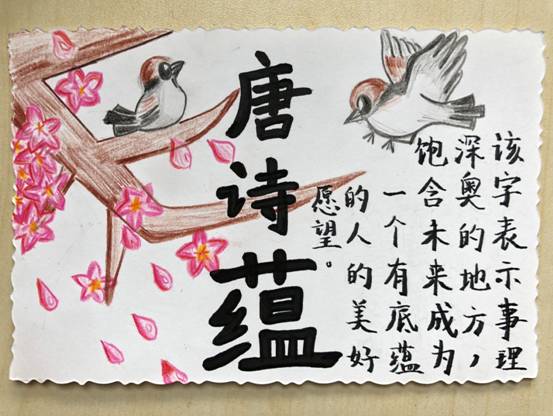 唐诗蕴
该字表示事理
深奥的地方，
饱含未来成为
一个有底蕴
的人的美好
愿望。